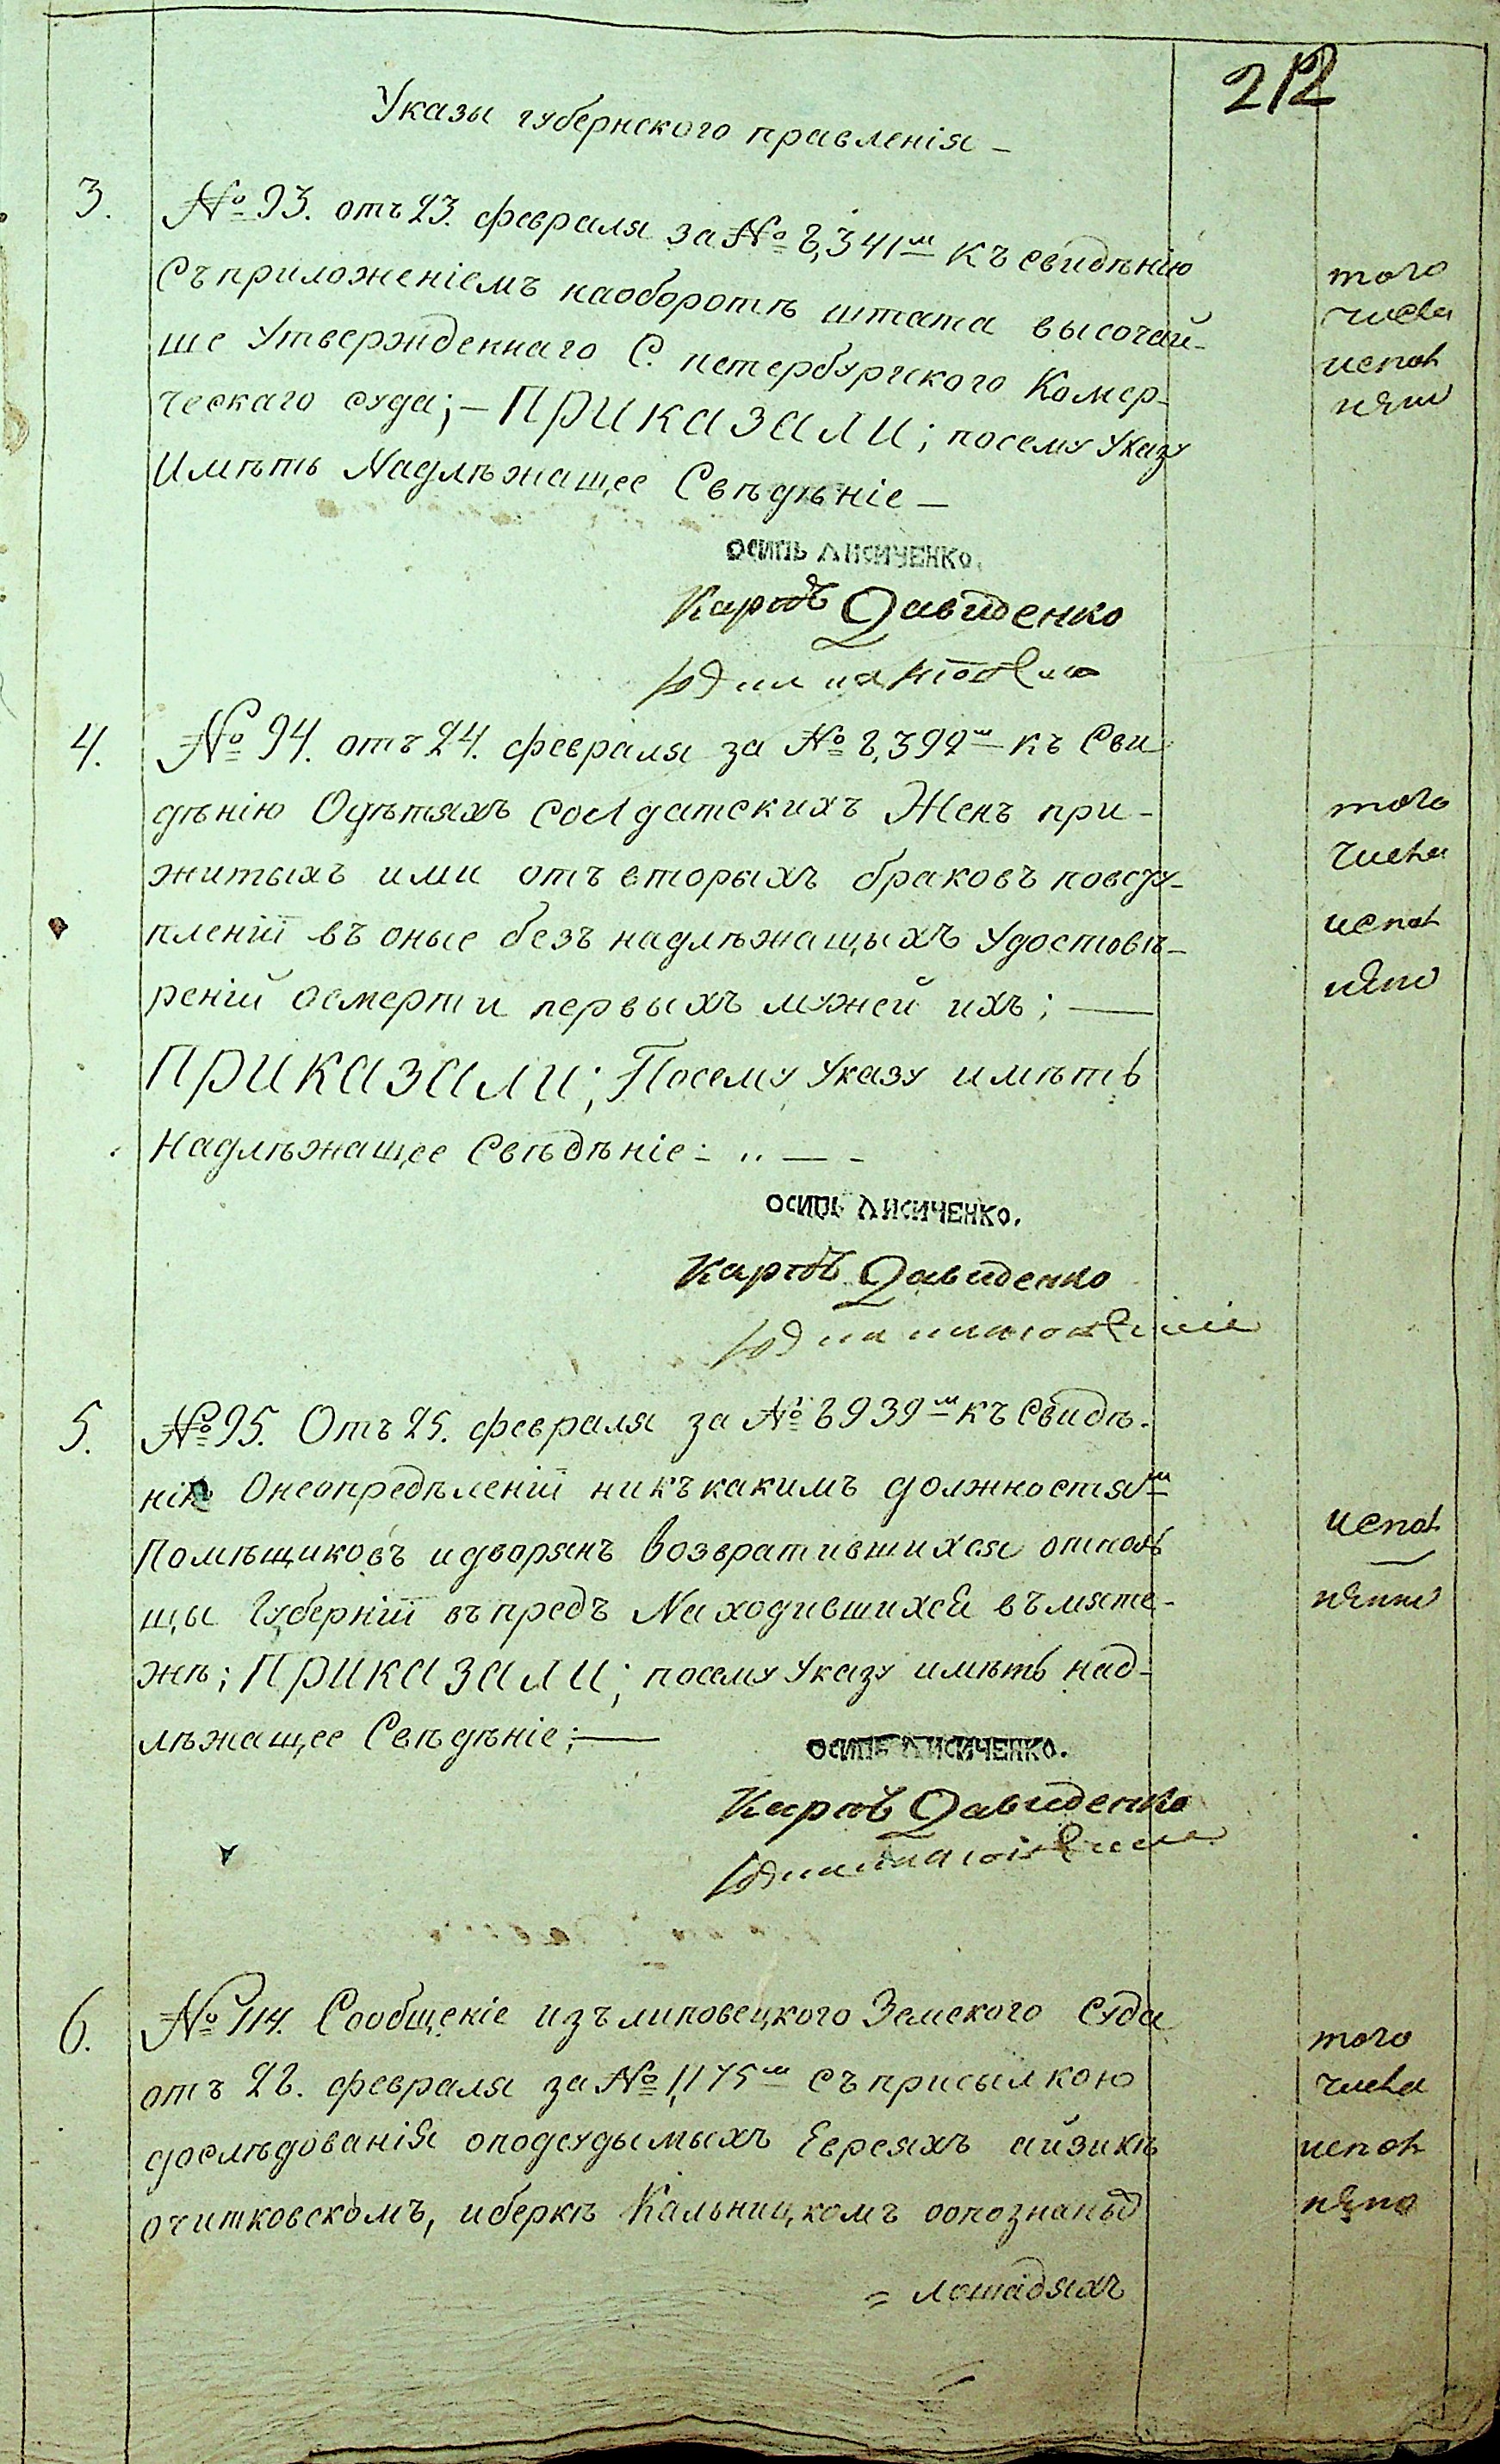 212
Указы губернского правленія –
3. № 93. отъ 23. февраля за № 8,341м къ свидѣнію
Съ приложеніемъ наоборотѣ штата высочай-
ше Утвержденнаго С. петербургского Комер-
ческаго суда; – Приказали; посему Указу
Имѣть Надлѣжащее Свѣдѣніе –
того
числа
испол
нѣно
ОСИПЬ ЛИСИЧЕНКО.
Карпъ Давиденко
4. № 94. отъ 24. февраля за № 8,392м къ Сви
дѣнію Одѣтяхъ солдатскихъ Женъ при-
житыхъ ими отъ вторыхъ браковъ повсту-
пленій въ оные безъ надлѣжащыхъ Удостовѣ-
реній осмерти первыхъ мужей ихъ; —
Приказали; Посему Указу имѣть
Надлѣжащее Свѣдѣніе –
того
числа
испол
нѣно
ОСИПЬ ЛИСИЧЕНКО.
Карпъ Давиденко
5. № 95. Отъ 25. февраля за № 8939м къ Свидѣ-
нію Онеопредѣленій никъкакимъ должностям
Помѣщиковъ идворянъ возвратившихся
щы Губерній въпредъ Находившихся въмяте-
жѣ; Приказали; посему Указу имѣть над-
лѣжащее Свѣдѣніе; —
испол
нѣнно
ОСИПЬ ЛИСИЧЕНКО.
Карпъ Давиденко
6. № 114. Сообщеніе изъ липовецкого Земского Суда
отъ 28. февраля за № 1,175м съ присылкою
дослѣдованія оподсудымыхъ Евреяхъ айзикѣ
очитковскомъ, иберкѣ Кальницкомъ оопознаныхъ
= лошадяхъ
того
числа
испол
нѣно